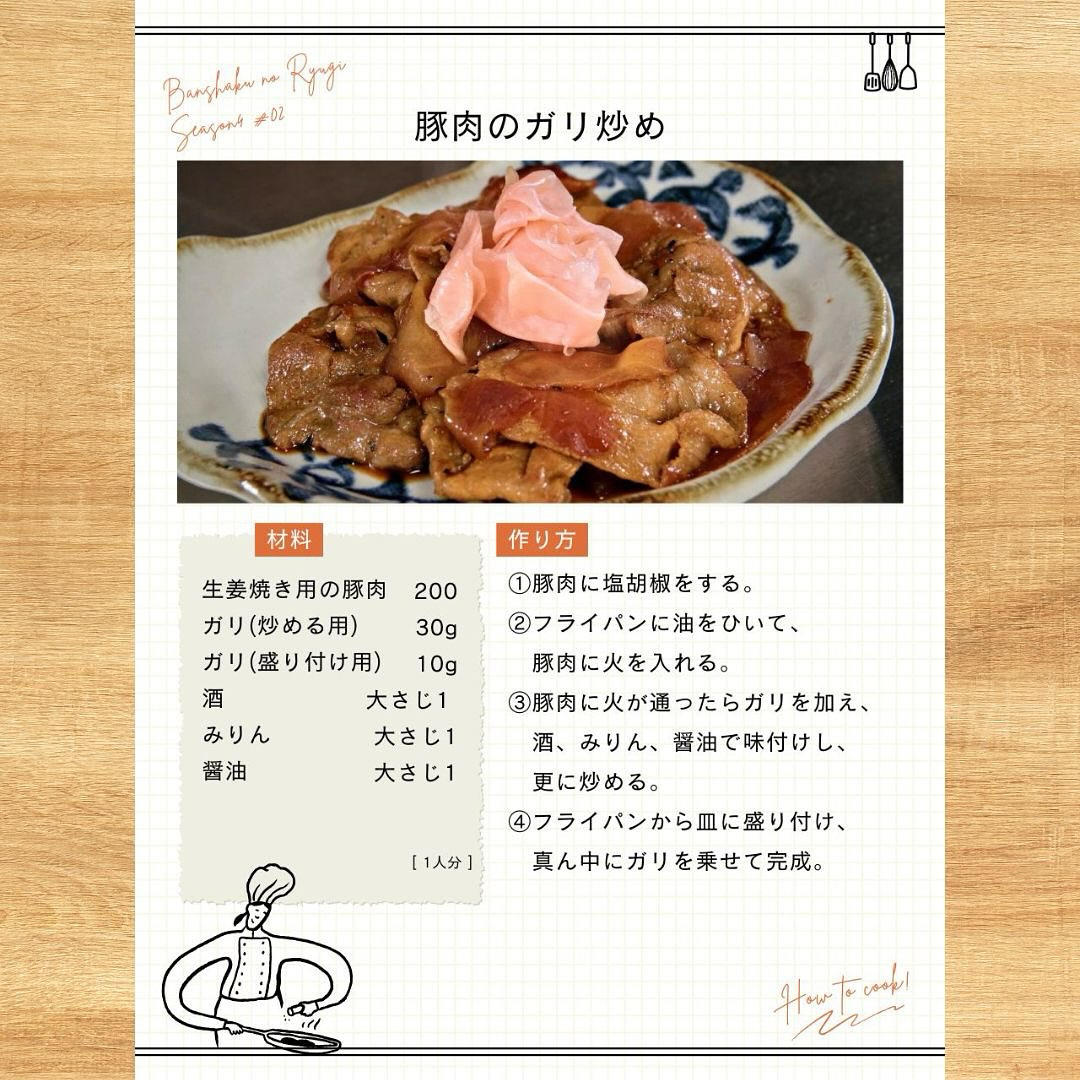 Banshaku no Ryugi
Season4 #02
豚肉のガリ炒め
材料
生姜焼き用の豚肉 200
ガリ(炒める用) 30g
ガリ(盛り付け用) 10g
酒 大さじ1
みりん 大さじ1
醤油 大さじ1
[ 1人分 ]
作り方
①豚肉に塩胡椒をする。
②フライパンに油をひいて、
豚肉に火を入れる。
③豚肉に火が通ったらガリを加え、
酒、みりん、醤油で味付けし、
更に炒める。
④フライパンから皿に盛り付け、
真ん中にガリを乗せて完成。
How to cook!